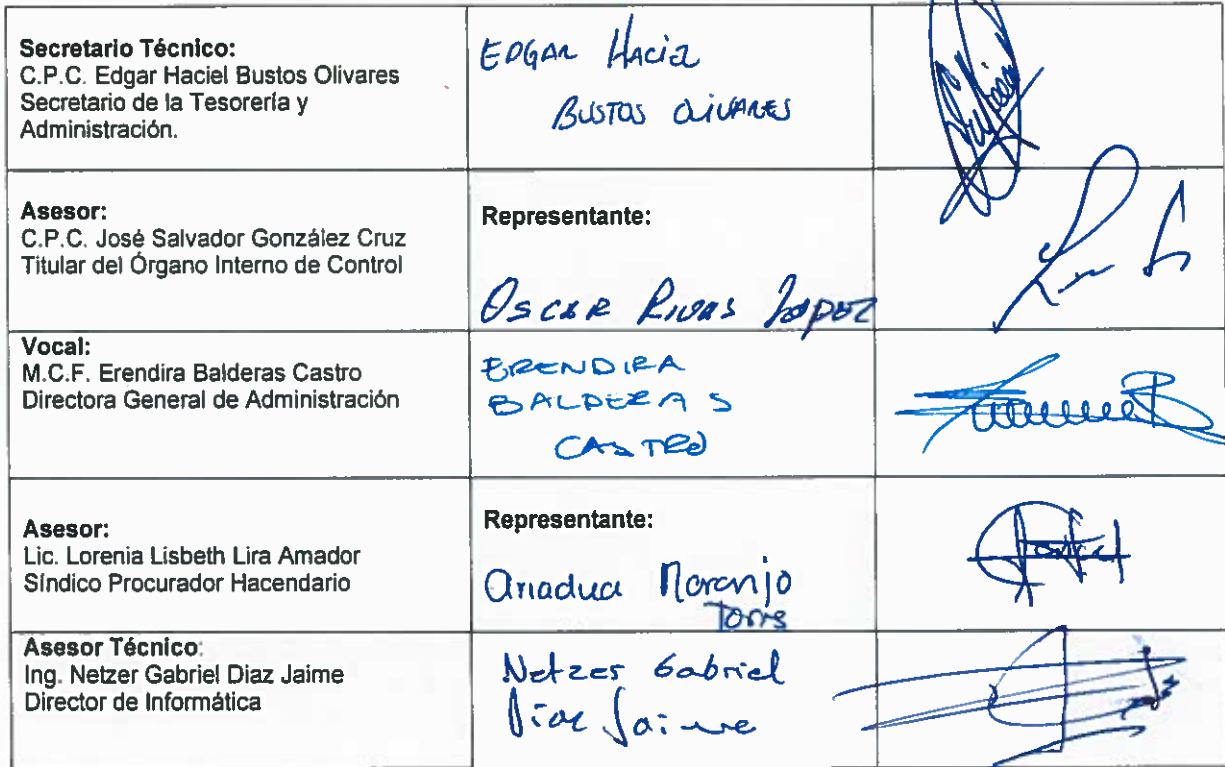 Secretario Técnico:
C.P.C. Edgar Haciel Bustos Olivares
Secretario de la Tesorería y
Administración.
EDGAR HACIEL
BUSTOS OLIVARES
Asesor:
C.P.C. José Salvador González Cruz
Titular del Órgano Interno de Control
Representante:
OSCAR RIVAS LOPEZ
Vocal:
M.C.F. Erendira Balderas Castro
Directora General de Administración
ERENDIRA
BALDERAS
CASTRO
Asesor:
Lic. Lorenia Lisbeth Lira Amador
Síndico Procurador Hacendario
Representante:
Ariadna Naranjo
Torres
Asesor Técnico:
Ing. Netzer Gabriel Diaz Jaime
Director de Informática
Netzer Gabriel
Diaz Jaime